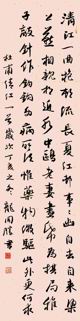 清江一曲抱村流長夏江村事事幽自去自來梁
上燕相親相近水中鷗老妻畫紙為棋局稚
子敲針作釣鉤多病所須惟藥物微軀此外更何求
杜甫清江一首歲次丁亥之冬龍開勝書